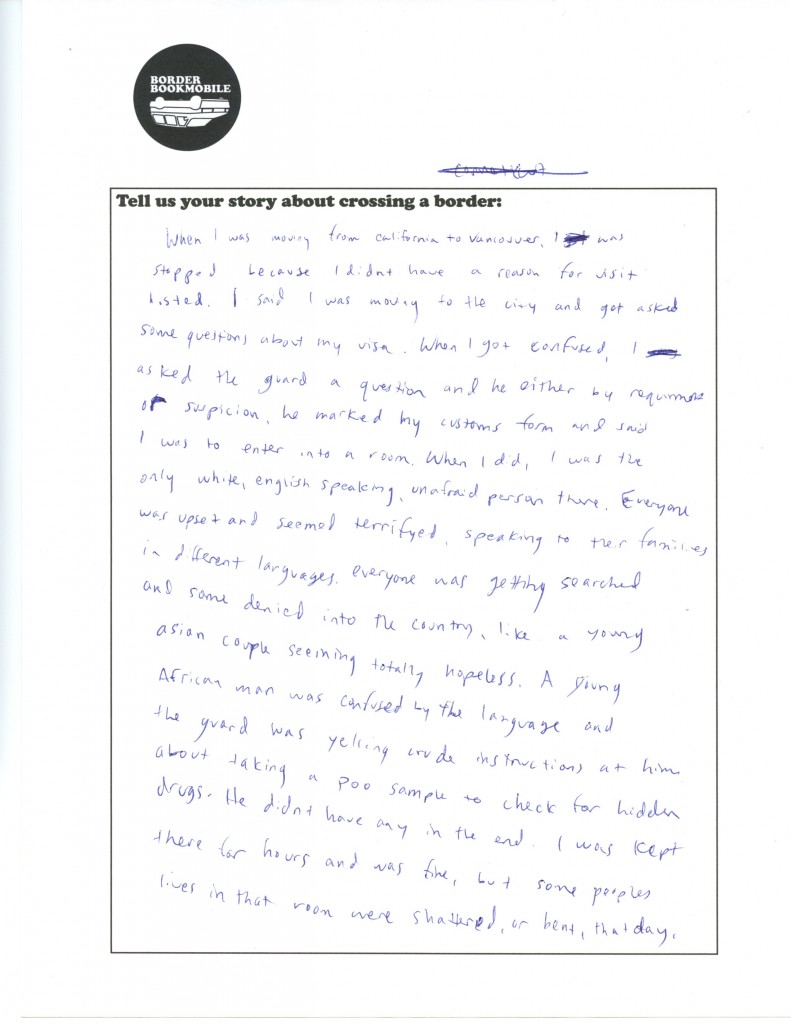 BORDER
BOOKMOBILE
Tell us your story about crossing a border:
When I was moving from california to Vancouver, I was
stopped because I didnt have a reason for visit
listed. I said I was moving to the city and got asked
some questions about my visa. When I got confused, I
asked the guard a question and he either by requirment
or suspicion, he marked my customs form and said
I was to enter into a room. When I did, I was the
only white, english speaking, unafraid person there. Everyone
was upset and seemed terrifyed, speaking to their families
in different languages. everyone was getting searched
and some denied into the country, like a young
asian couple seeming totally hopeless. A young
African man was confused by the language and
the guard was yelling crude instructions at him
about taking a poo sample to check for hidden
drugs. He didnt have any in the end. I was kept
there for hours and was fine, but some peoples
lives in that room were shattered, or bent, that day.